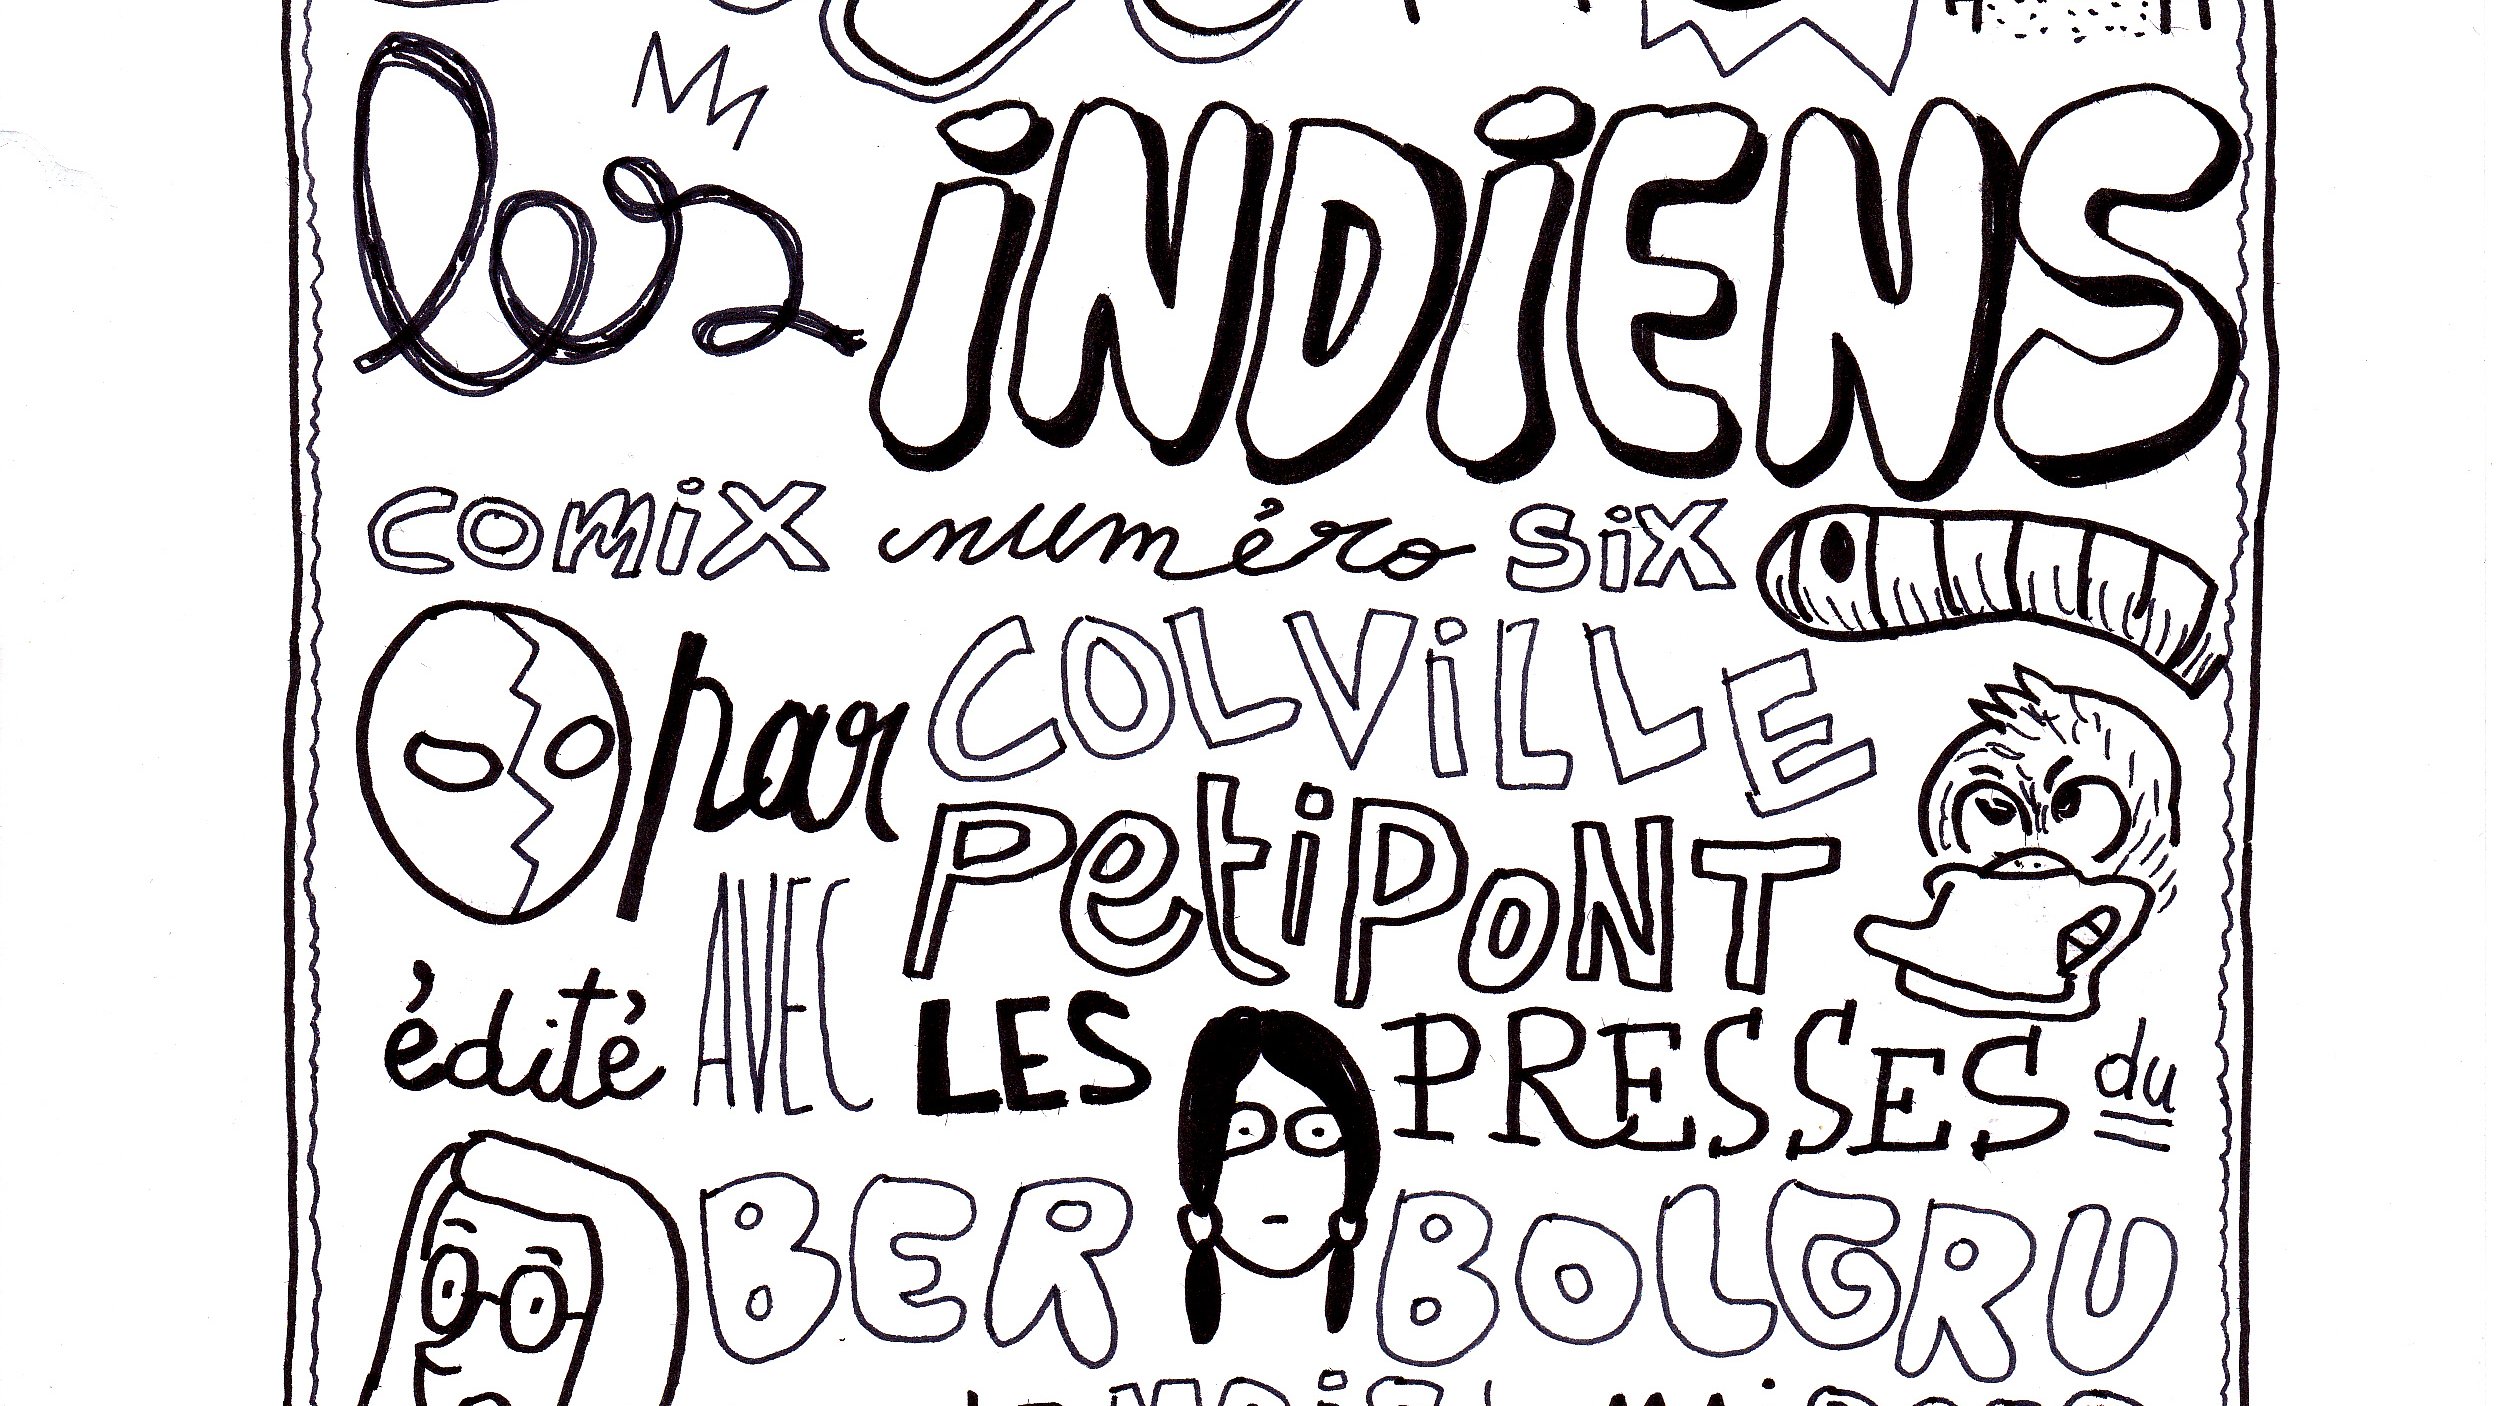 les iNDiENS
comix numéro six
par COLViLLE
PetiPoNT
édité AVEC LES PRESSES du
BER BOLGRU